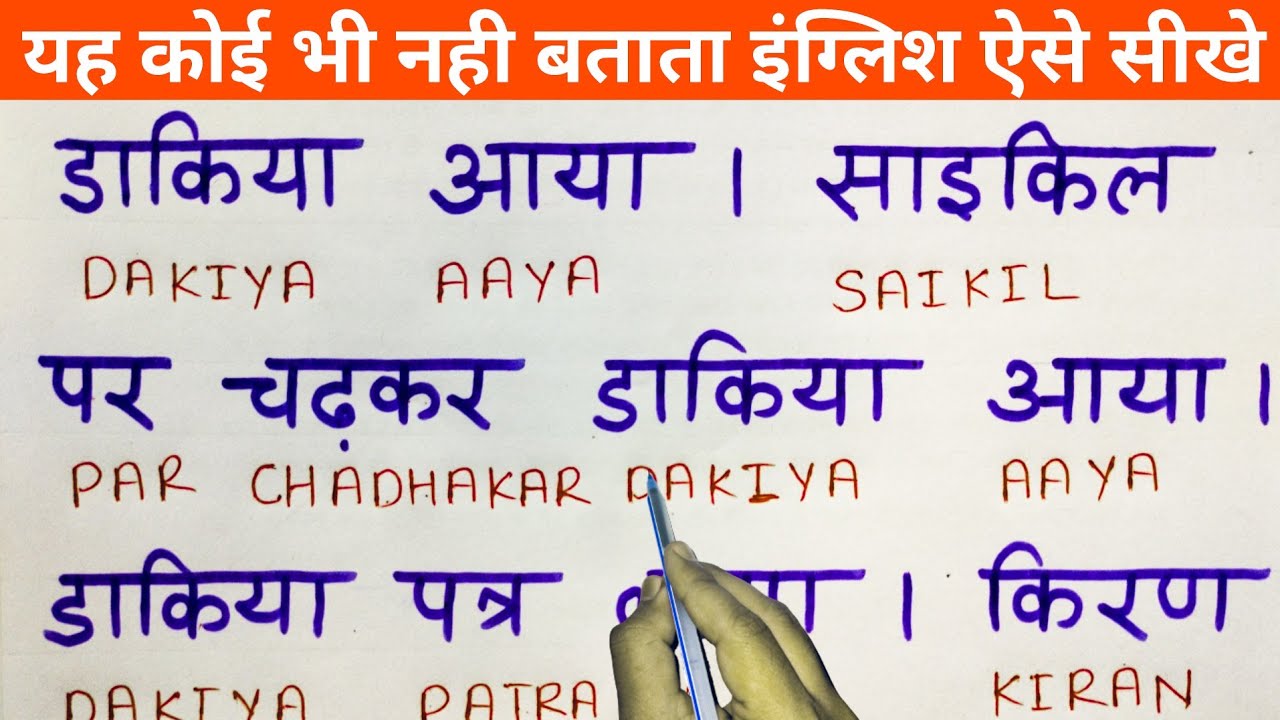 यह कोई भी नही बताता इंग्लिश ऐसे सीखे
डाकिया आया । साइकिल
DAKIYA AAYA SAIKIL
पर चढ़कर डाकिया आया ।
PAR CHADHAKAR DAKIYA AAYA
डाकिया पत्र । किरण
DAKIYA PATRA KIRAN